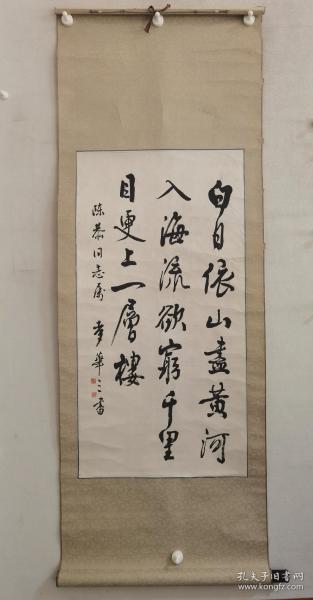 白日依山盡黃河
入海流欲窮千里
目更上一層樓
陈恭同志属
李華三書
孔夫子旧书网
kongfz.com